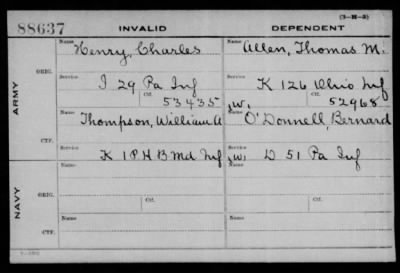 88637 INVALID DEPENDENT
(3-H-3)
Name Henry, Charles Name Allen, Thomas M.
ARMY
ORIG.
Service I 29 Pa Inf Service K 126 Ohio Inf
Ctf. 53435 Ctf. 52968
Name Thompson, William A Name ,W, O'Donnell, Bernard
CTF.
K 1 P H B Md Inf ,W, D 51 Pa Inf
NAVY
ORIG.
Name Name
Service Ctf. Service Ctf.
CTF.
Name Name